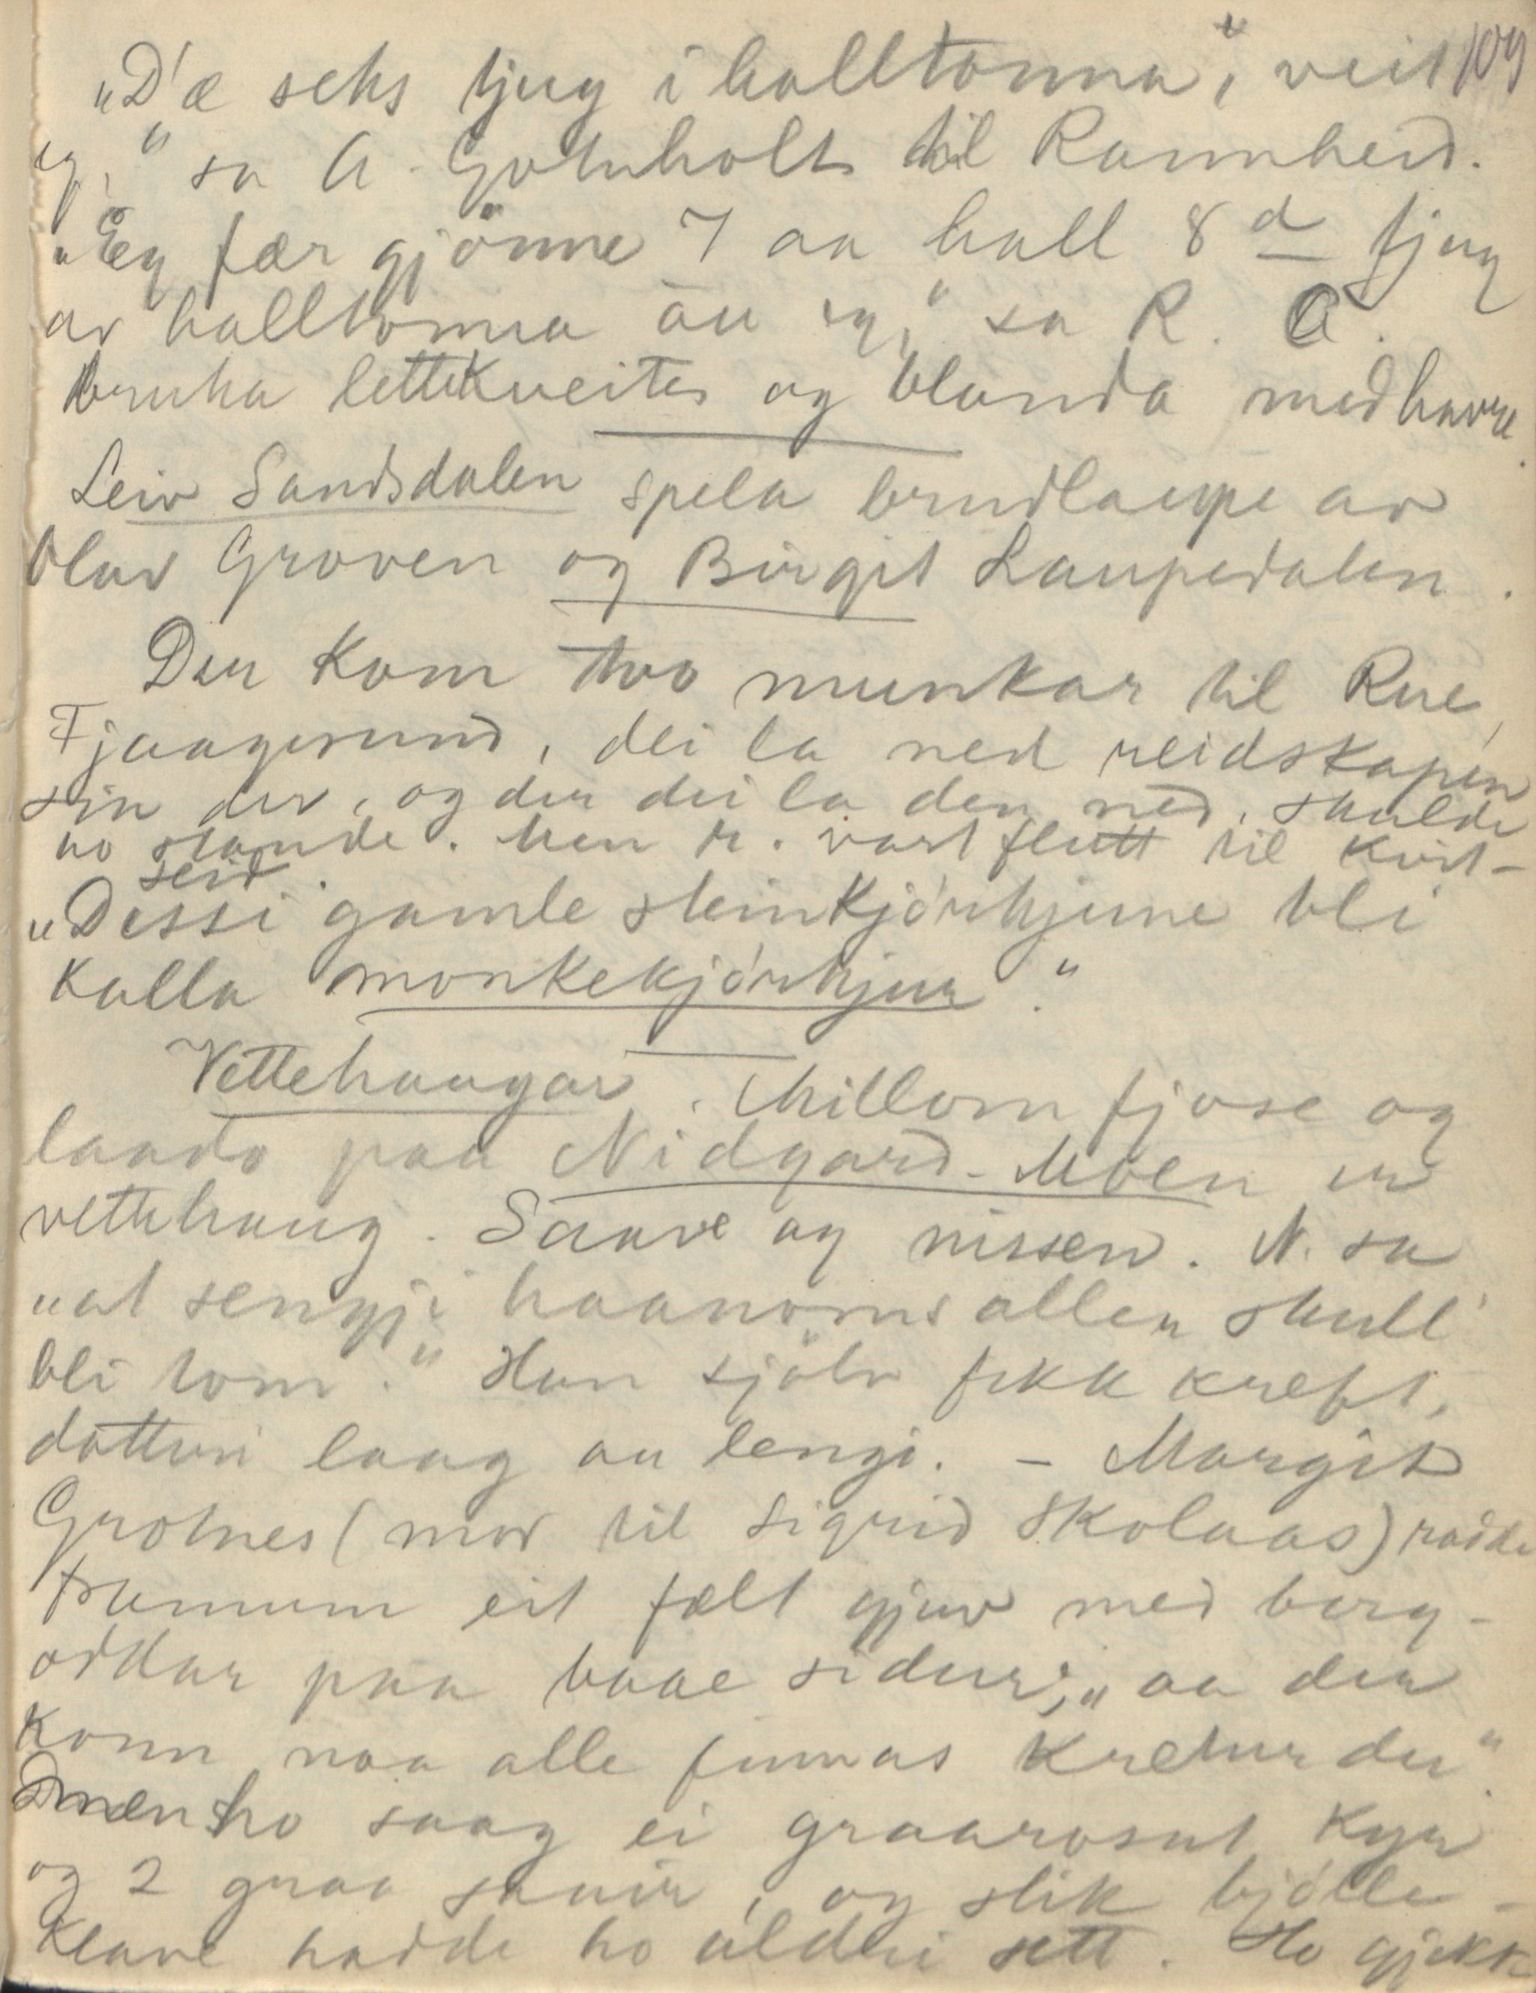 109
„D'æ seks tjug i halltonna", veit
eg," sa A. Gotuholt til Rannheid.
„Eg fær gjönne 7 aa hall 8 d tjug
av halltonna au eg," sa R. A.
bruka lettekveite og blanda med havre.
Leiv Sandsdalen spela brudlaupe av
Olav Groven og Birgit Laupedalen.
Der kom tvo munkar til Rue,
Fjaagesund, dei la ned reidskapen
sin der, og der dei la den ned, skulde
ho stande. Men k. vart flutt til Kvit-
seid
„Dessi gamle steinkjórkjune bli
kalla monkekjórkjur."
Vettehaugar. Millom fjose og
laado paa Nidgard-Moen er
vettehaug. Saave og nissen. N. sa
„at sengji haanoms aller skull
bli tom." Han sjölv fekk kreft,
dotteri laag au lengi. - Margit
Grotnes (mor til Sigrid Skolaas) rodde
framum eit fælt gjuv med berg-
oddar paa baae sidur; „aa der
konn naa alle finnas kretur der".
men ho saag ei graarosut kyr
og 2 graa sauir, og slik bjölle-
klave hadde ho aldri sett. Ho gjekk